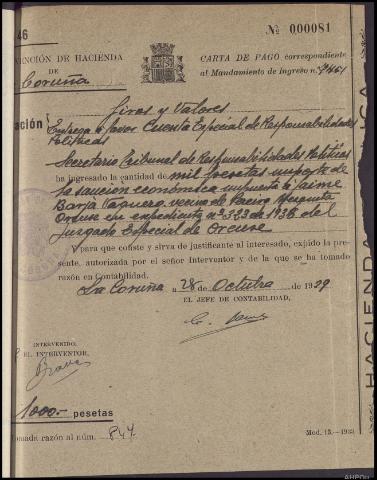 46
Nº 000081
INTERVENCIÓN DE HACIENDA
DE
Coruña
CARTA DE PAGO correspondiente
al Mandamiento de ingreso n.º
Giros y Valores
Entrega a favor Cuenta Especial de Responsabilidades
Politicas
Secretario Tribunal de Responsabilidades Politicas
ha ingresado la cantidad de mil pesetas importe de
la sanción económica impuesta a Jaime
Borja Vaquero, vecino de
Orense en expediente nº 323 de 1936 del
Juzgado Especial de Orense
Y para que conste y sirva de justificante al interesado, expido la pre-
sente, autorizada por el señor Interventor y de la que se ha tomado
razón en Contabilidad.
La Coruña a 28 de Octubre de 1939
EL JEFE DE CONTABILIDAD,
INTERVENIDO.
EL INTERVENTOR,
1000.- pesetas
Tomada razón al núm. 847
Mod. 15.—193
HACIENDA